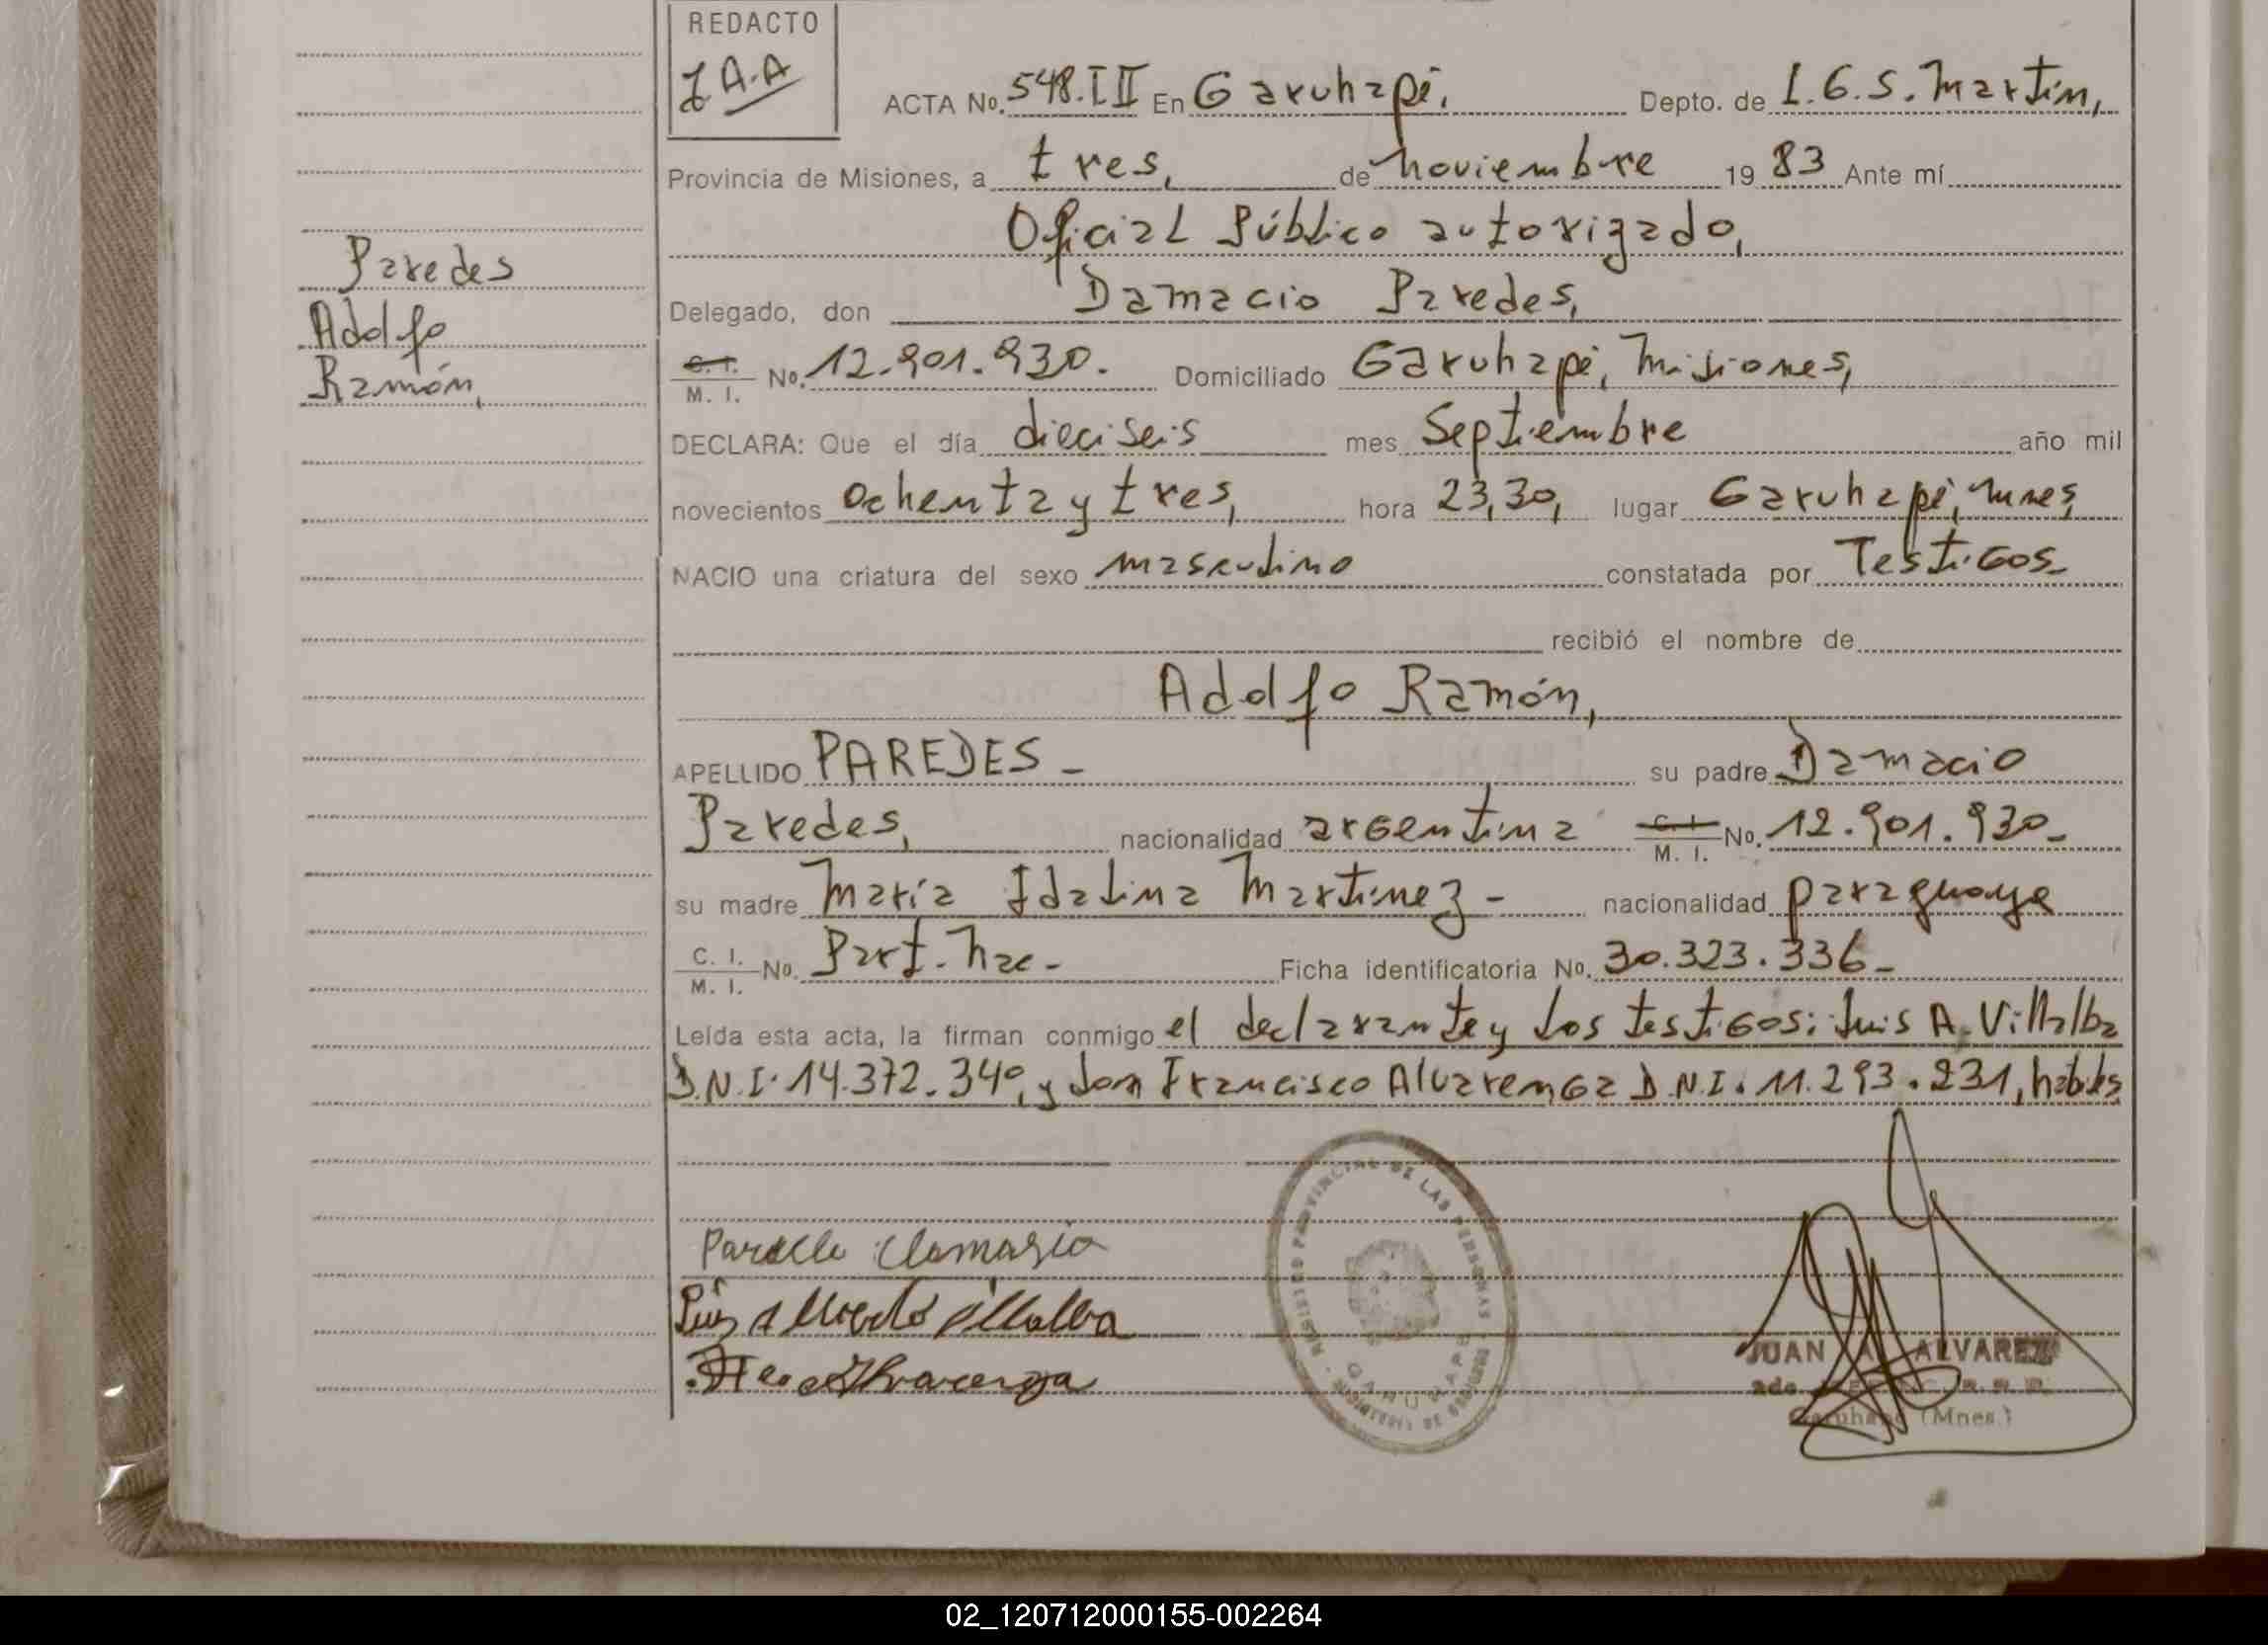 REDACTO
J A.A
ACTA No. 548.III En Garuhapé, Depto. de L.G.S. Martín,
Provincia de Misiones, a tres, de noviembre 19 83 Ante mí
Oficial Público autorizado,
Delegado, don Damacio Paredes,
C. I. M. I. No. 12.901.930. Domiciliado Garuhapé, Misiones,
DECLARA: Que el día dieciseis mes Septiembre año mil
novecientos ochenta y tres, hora 23,30, lugar Garuhapé, Mnes,
NACIO una criatura del sexo masculino constatada por Testigos
recibió el nombre de
Adolfo Ramón,
APELLIDO PAREDES - su padre Damacio
Paredes, nacionalidad argentina C. I. M. I. No. 12.901.930-
su madre María Idalina Martinez - nacionalidad paraguaya
C. I. M. I. No. Part. Nac - Ficha identificatoria No. 30.323.336-
Leída esta acta, la firman conmigo el declarante y los testigos: Luis A. Villalba
D.N.I. 14.372.340, y don Francisco Alvarenga D.N.I. 11.293.231, hábiles
Paredes
Adolfo
Ramón,
Luis Alberto Villalba
Alvarenga
REGISTRO PROVINCIAL DE LAS PERSONAS
MINISTERIO DE GOBIERNO
GARUHAPE
JUAN A. ALVAREZ
Garuhapé (Mnes.)
02_120712000155-002264